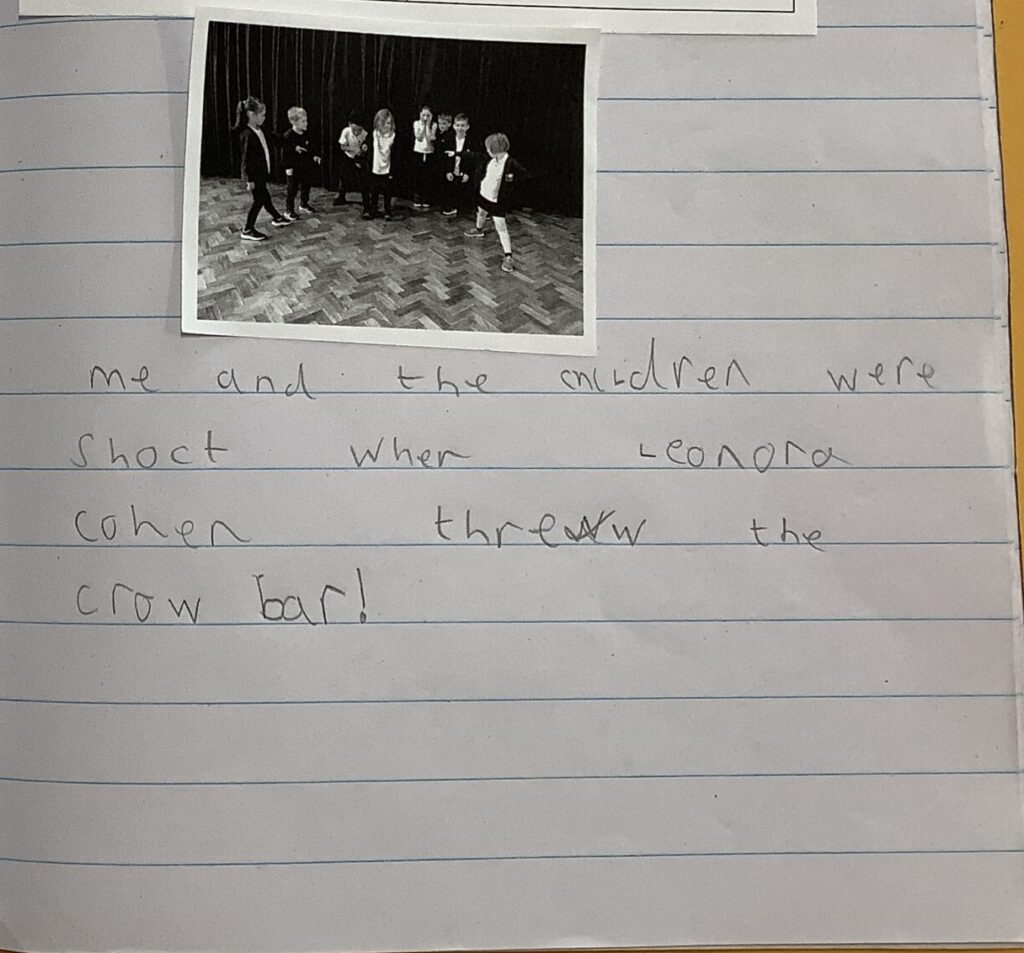 me and the children were
shoct when Leonora
cohen threw the
crow bar!